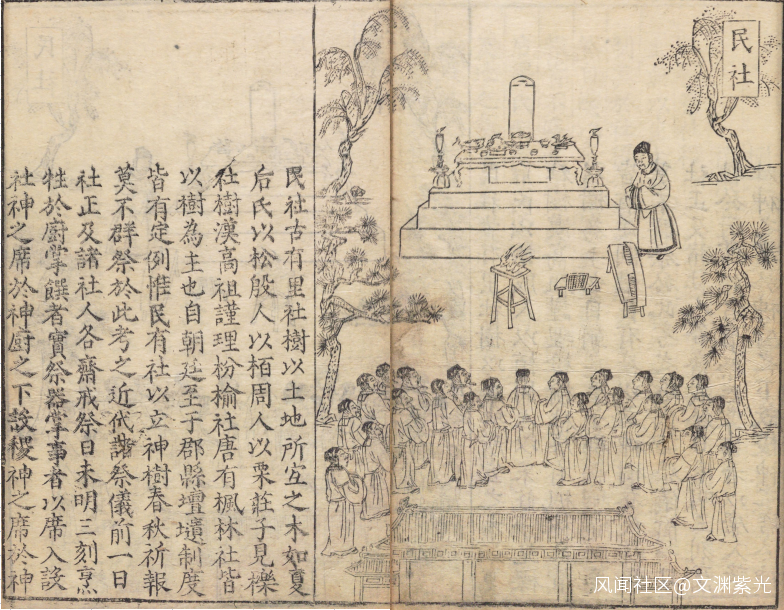 民社
民社古有里社樹以土地所宜之木如夏
后氏以松殷人以栢周人以栗莊子見櫟
社樹漢高祖謹理枌榆社唐有楓林社皆
以樹為主也自朝廷至于郡縣壇壝制度
皆有定例惟民有社以立神樹春秋祈報
莫不群祭於此考之近代諸祭儀前一日
社正及諸社人各齋戒祭日未明三刻烹
牲於厨掌饌者實祭器掌事者以席入設
社神之席於神厨之下設稷神之席於神
风闻社区@文渊紫光